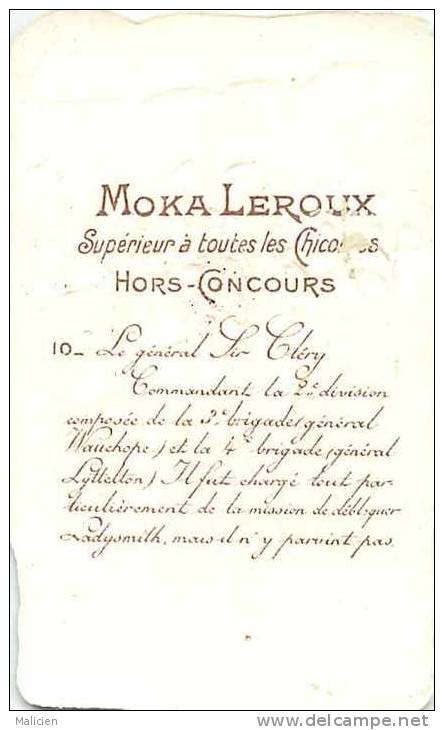 MOKA LEROUX
Supérieur à toutes les
HORS-CONCOURS
10_ Le général Sir Cléry
Commandant la 2e division
composée de la 3e brigade (général
Wauchope) et la 4e brigade (général
Lyttelton) Il fut chargé tout par-
ticulièrement de la mission de débloquer
Ladysmith, mais il n'y parvint pas.
Malicien
www.delcampe.net